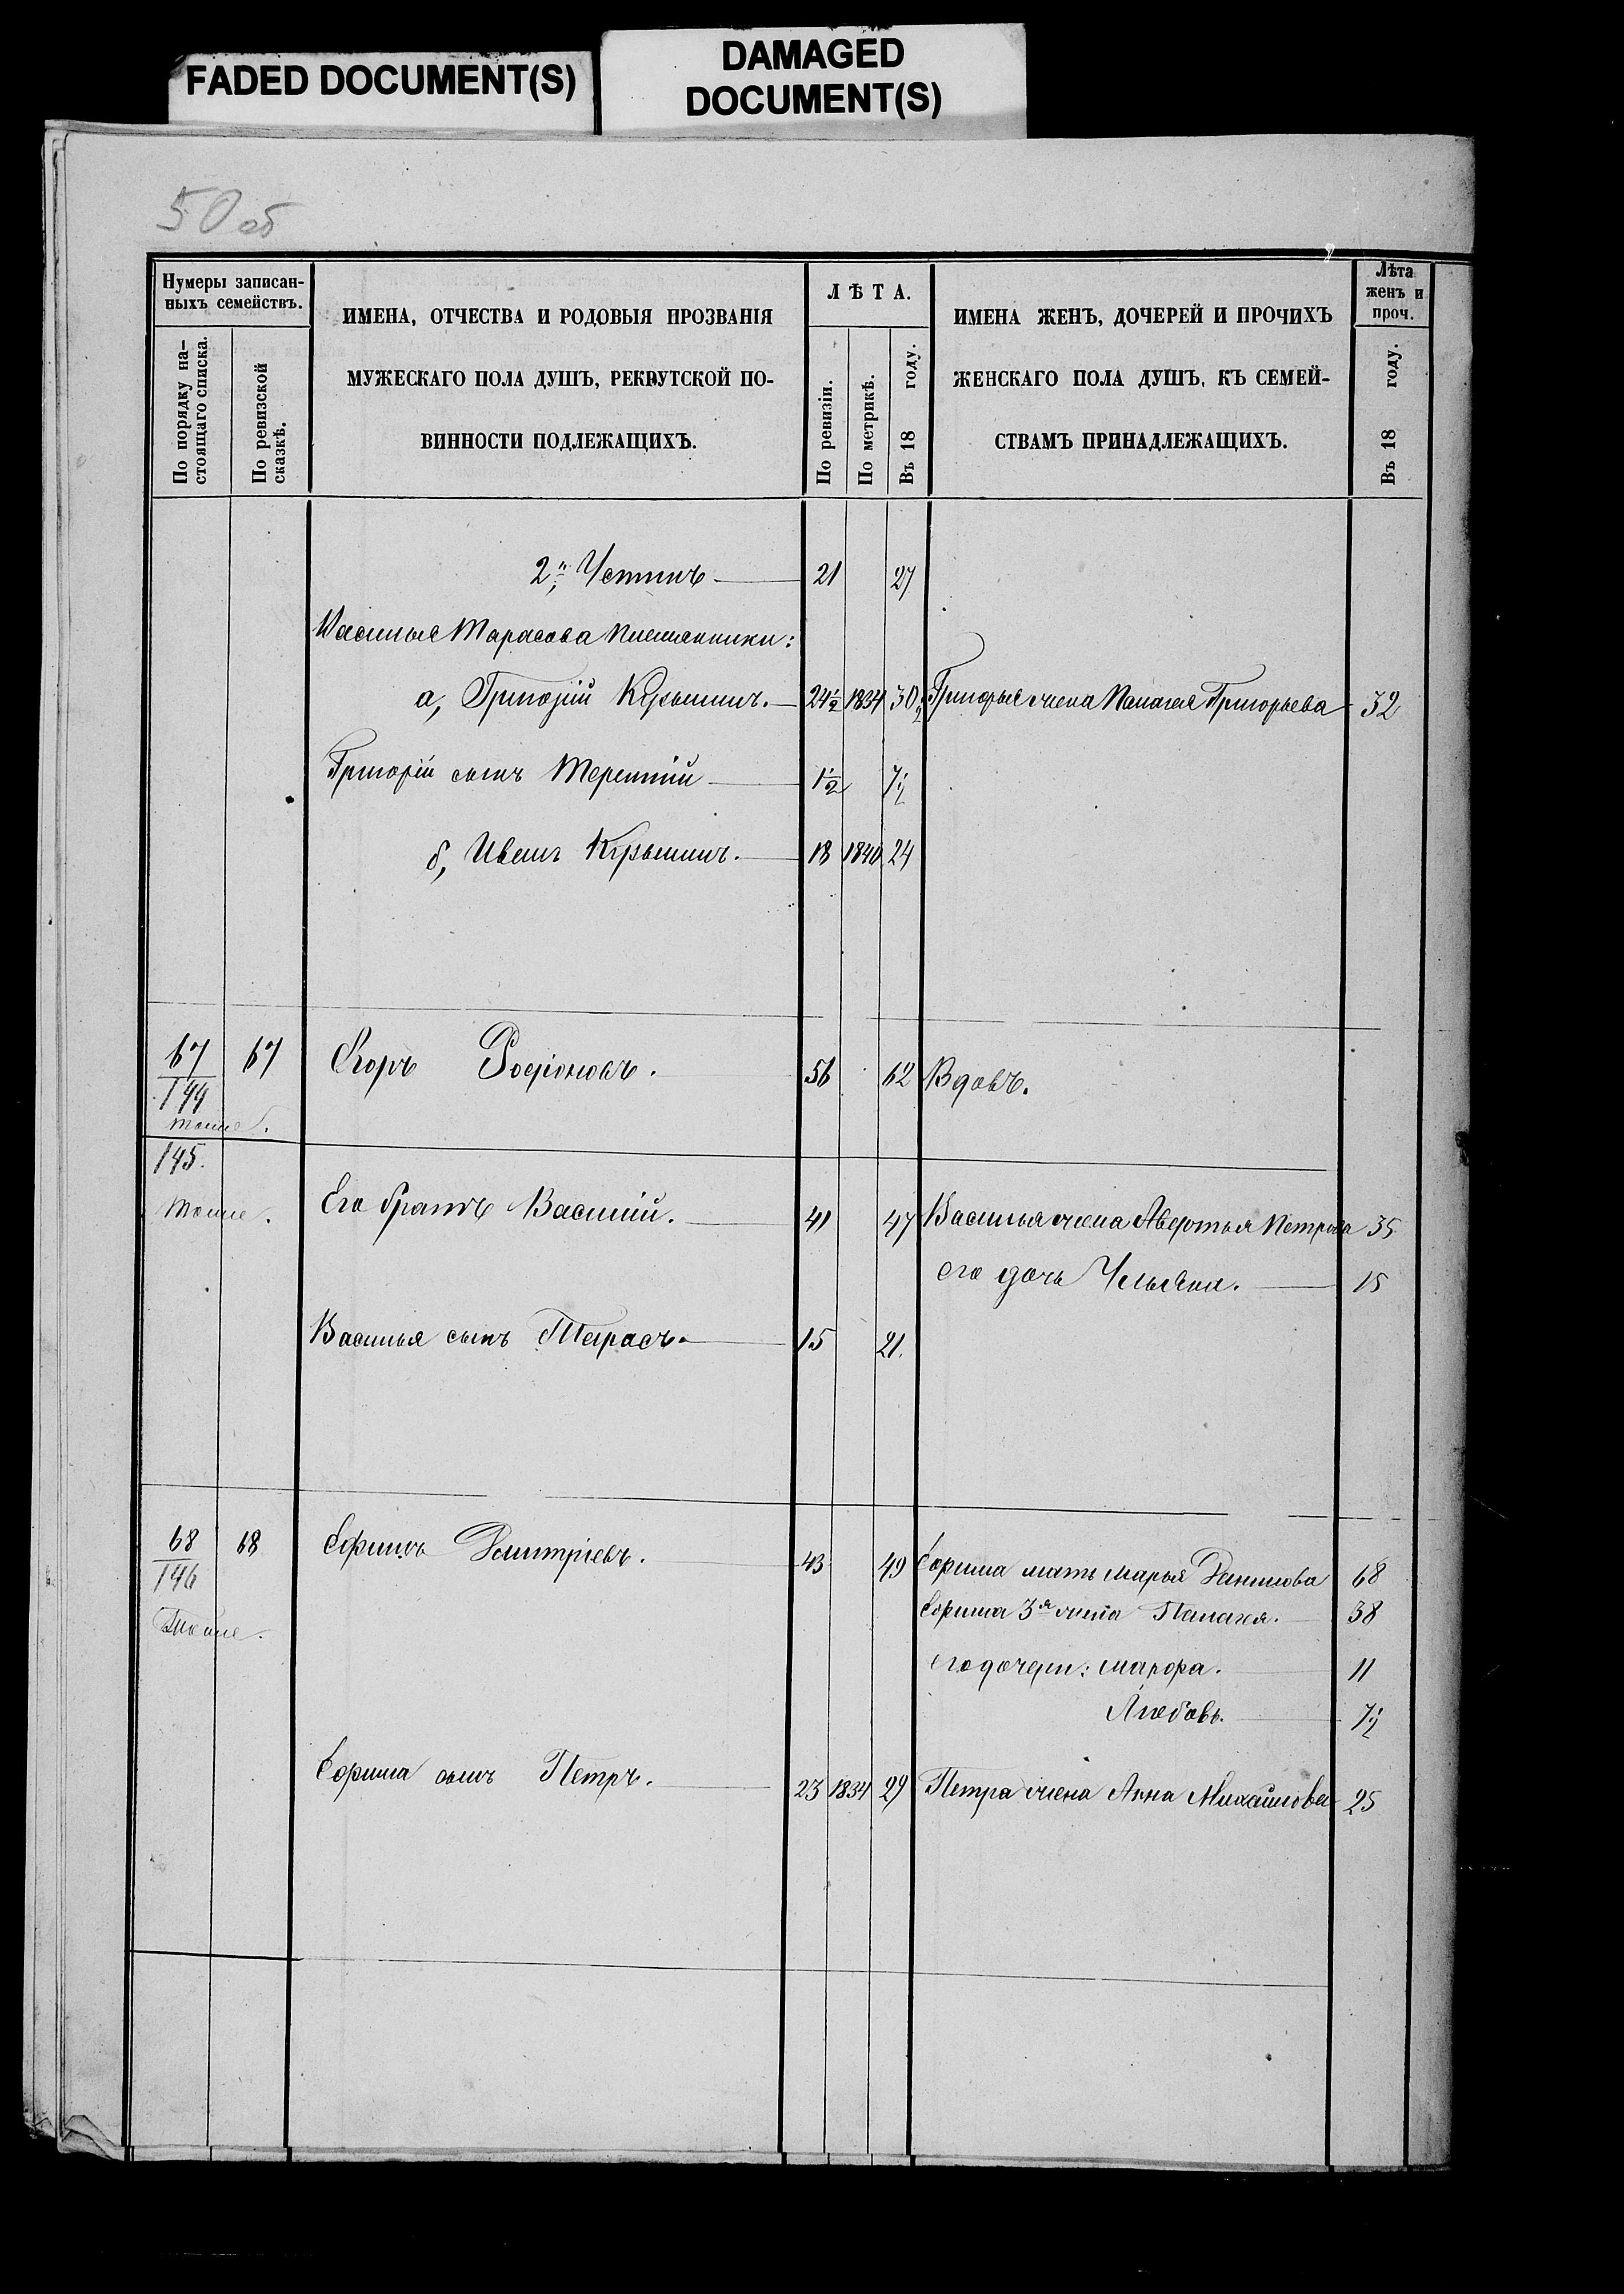 FADED DOCUMENT(S)
DAMAGED
DOCUMENT(S)
50 об
Нумеры записан-
ныхъ семействъ.
По порядку на-
стоящаго списка.
По ревизской
сказкѣ.
ИМЕНА, ОТЧЕСТВА И РОДОВЫЯ ПРОЗВАНІЯ
МУЖЕСКАГО ПОЛА ДУШЪ, РЕКРУТСКОЙ ПО-
ВИННОСТИ ПОДЛЕЖАЩИХЪ.
ЛѢТА.
По ревизіи.
По метрикѣ.
Въ 18 году.
ИМЕНА ЖЕНЪ, ДОЧЕРЕЙ И ПРОЧИХЪ
ЖЕНСКАГО ПОЛА ДУШЪ, КЪ СЕМЕЙ-
СТВАМЪ ПРИНАДЛЕЖАЩИХЪ.
Лѣта
женъ и
проч.
Въ 18 году.
2й, Устинъ 21 27
Тарасова племянники:
а, Григорій Кузьминъ. 24½ 1834 30½ Григорья жена Палагея Григорьева 32
Григорій сынъ Терентій 1½ 7½
б, Иванъ Кузьминъ. 18 1840 24
67 67 Егоръ Родіоновъ. 56 62 Вдовъ.
144
тоже.
145.
тоже. Его братъ Василій. 41 47 Василья жена Авдотья Петрова 35
его дочь Ульяна. 15
Василья сынъ Тарасъ. 15 21.
68 68 Ефимъ Дмитріевъ. 43 49 Ефима мать Марья Данилова 68
146
тоже. Ефима 3я жена Палагея. 38
его дочери: Марфа. 11
Любовь. 7½
Ефима сынъ Петръ. 23 1834 29 Петра жена Анна Михайлова 25